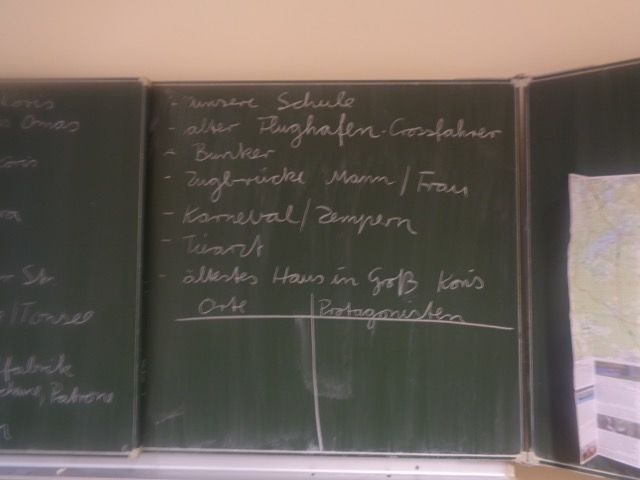 Köris
Omas
Köris
Str.
Torsee
fabrik
Patrone
- unsere Schule
- alter Flughafen-Crossfahrer
- Bunker
- Zugbrücke Mann/Frau
- Karneval/Zempern
- Tierarzt
- ältestes Haus in Groß Köris
Orte | Protagonisten